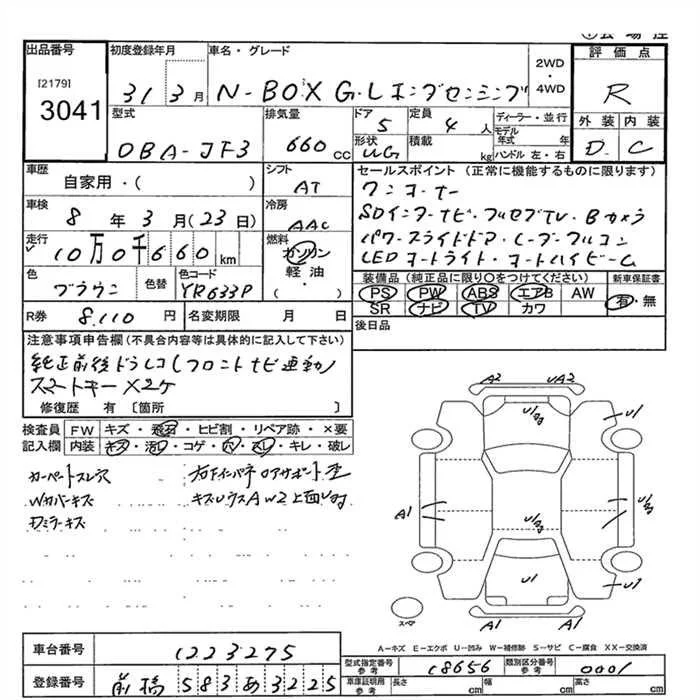 出品番号 初度登録年月 車名・グレード 評価点
[2179]
3041
31 3月 N-BOX G・Lホンダセンシング 2WD・4WD R
型式 排気量 ドア 定員 ディーラー・並行 外装 内装
DBA-JF3 660cc 5 4人 モデル年式 年 D C
形状 積載 ハンドル 左・右
UG kg
車歴 シフト セールスポイント(正常に機能するものに限ります)
自家用・( ) AT ワンオーナー
車検 冷房 SDインターナビ・フルセグTV・Bカメラ
8年3月(23日) AAC パワースライドドア・レーダークルコン
走行 燃料 LEDオートライト・オートハイビーム
10万0千660km ガソリン 軽油・( )
装備品(純正品に限り○をつけてください) 新車保証書
色 色替 色コード PS PW ABS エアB AW 有・無
ブラウン YR633P SR ナビ TV カワ
R券 8,110円 名変期限 月 日 後日品
注意事項申告欄(不具合内容等は具体的に記入して下さい)
純正前後ドラレコ(フロントナビ連動)
スマートキー×2ケ
修復歴 有 [箇所 ]
検査員記入欄 FW キズ・飛石・ヒビ割・リペア跡・×要
内装 キズ・汚れ・コゲ・穴・スレ・キレ・破レ
カーペートスレ穴
Wカバーキズ
キズ
A2 UA2
U1
A1
U1
U1
A1 A1
スペア
A−キズ E−エクボ U−凹み W−補修跡 S−サビ C−腐食 XX−交換済
車台番号 1223275
登録番号 前橋 583 あ 3225
型式指定番号 参考 18656 類別区分番号 参考 0001
車庫証明用 参考 長さ cm 幅 cm 高さ cm